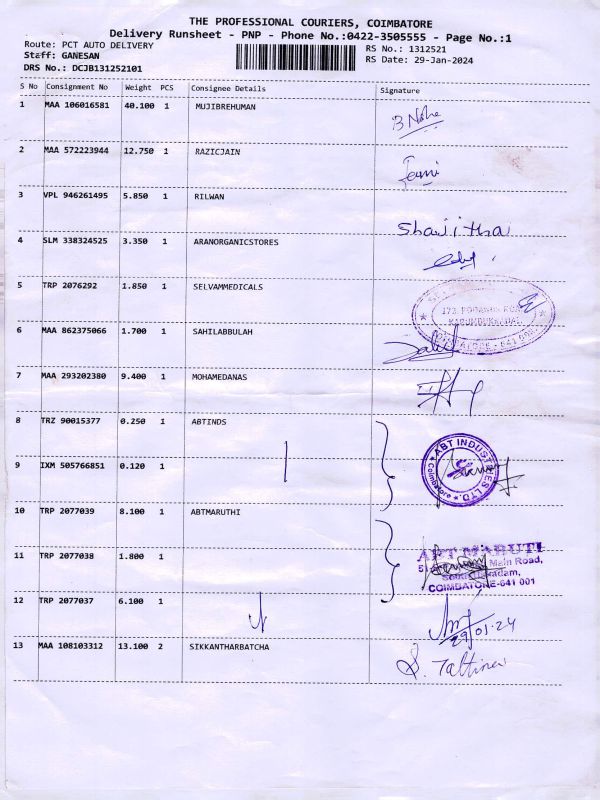 THE PROFESSIONAL COURIERS, COIMBATORE
Delivery Runsheet - PNP - Phone No.:0422-3505555 - Page No.:1
Route: PCT AUTO DELIVERY RS No.: 1312521
Staff: GANESAN RS Date: 29-Jan-2024
DRS No.: DCJB131252101
S No Consignment No Weight PCS Consignee Details Signature
1 MAA 106016581 40.100 1 MUJIBREHUMAN
2 MAA 572223944 12.750 1 RAZICJAIN
3 VPL 946261495 5.850 1 RILWAN
Shajitha
4 SLM 338324525 3.350 1 ARANORGANICSTORES
5 TRP 2076292 1.850 1 SELVAMMEDICALS
6 MAA 862375066 1.700 1 SAHILABBULAH
7 MAA 293202380 9.400 1 MOHAMEDANAS
8 TRZ 90015377 0.250 1 ABTINDS
ABT INDUSTRIES LTD. Coimbatore
9 IXM 505766851 0.120 1
10 TRP 2077039 8.100 1 ABTMARUTHI
ABT MARUTI
11 TRP 2077038 1.800 1
Main Road,
COIMBATORE-641 001
12 TRP 2077037 6.100 1
29/01.24
13 MAA 108103312 13.100 2 SIKKANTHARBATCHA